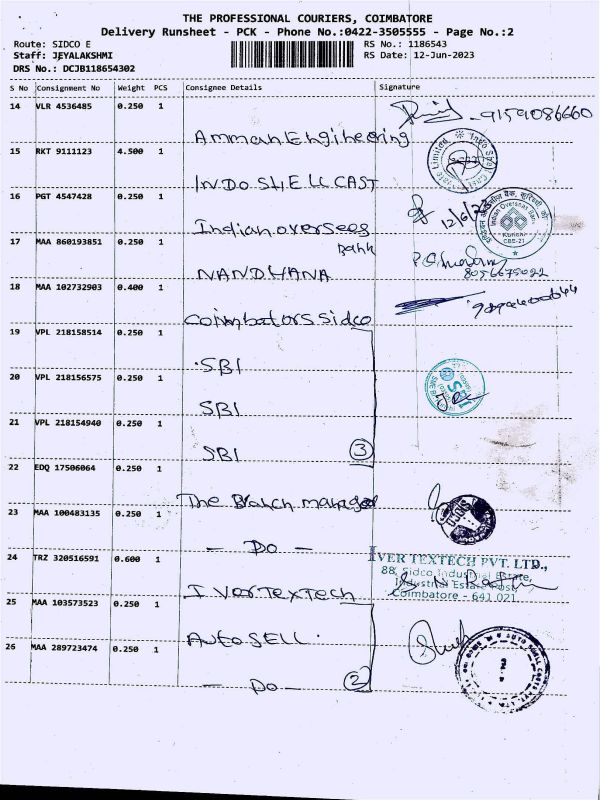 THE PROFESSIONAL COURIERS, COIMBATORE
Delivery Runsheet - PCK - Phone No.:0422-3505555 - Page No.:2
Route: SIDCO E
RS No.: 1186543
Staff: JEYALAKSHMI
RS Date: 12-Jun-2023
DRS No.: DCJB118654302
S No Consignment No Weight PCS Consignee Details Signature
14 VLR 4536485 0.250 1
Amman Engineering
9159086660
15 RKT 9111123 4.500 1
INDO SHELL CAST
16 PGT 4547428 0.250 1
Indian overseas
Bank
12/6/23
Indian Overseas Bank
Kurichi
CBE-21
17 MAA 860193851 0.250 1
NANDHANA
8056675022
18 MAA 102732903 0.400 1
Coimbatore Sidco
19 VPL 218158514 0.250 1
SBI
20 VPL 218156575 0.250 1
SBI
21 VPL 218154940 0.250 1
SBI
3
22 EDQ 17506064 0.250 1
The Branch manager
23 MAA 100483135 0.250 1
- Do -
24 TRZ 320516591 0.600 1
IVER TEXTECH PVT. LTD.,
88, Sidco Industrial Estate,
Industrial Estate Post,
Coimbatore - 641 021.
I ver Tex Tech
25 MAA 103573523 0.250 1
AUTO SELL.
26 MAA 289723474 0.250 1
- Do -
2